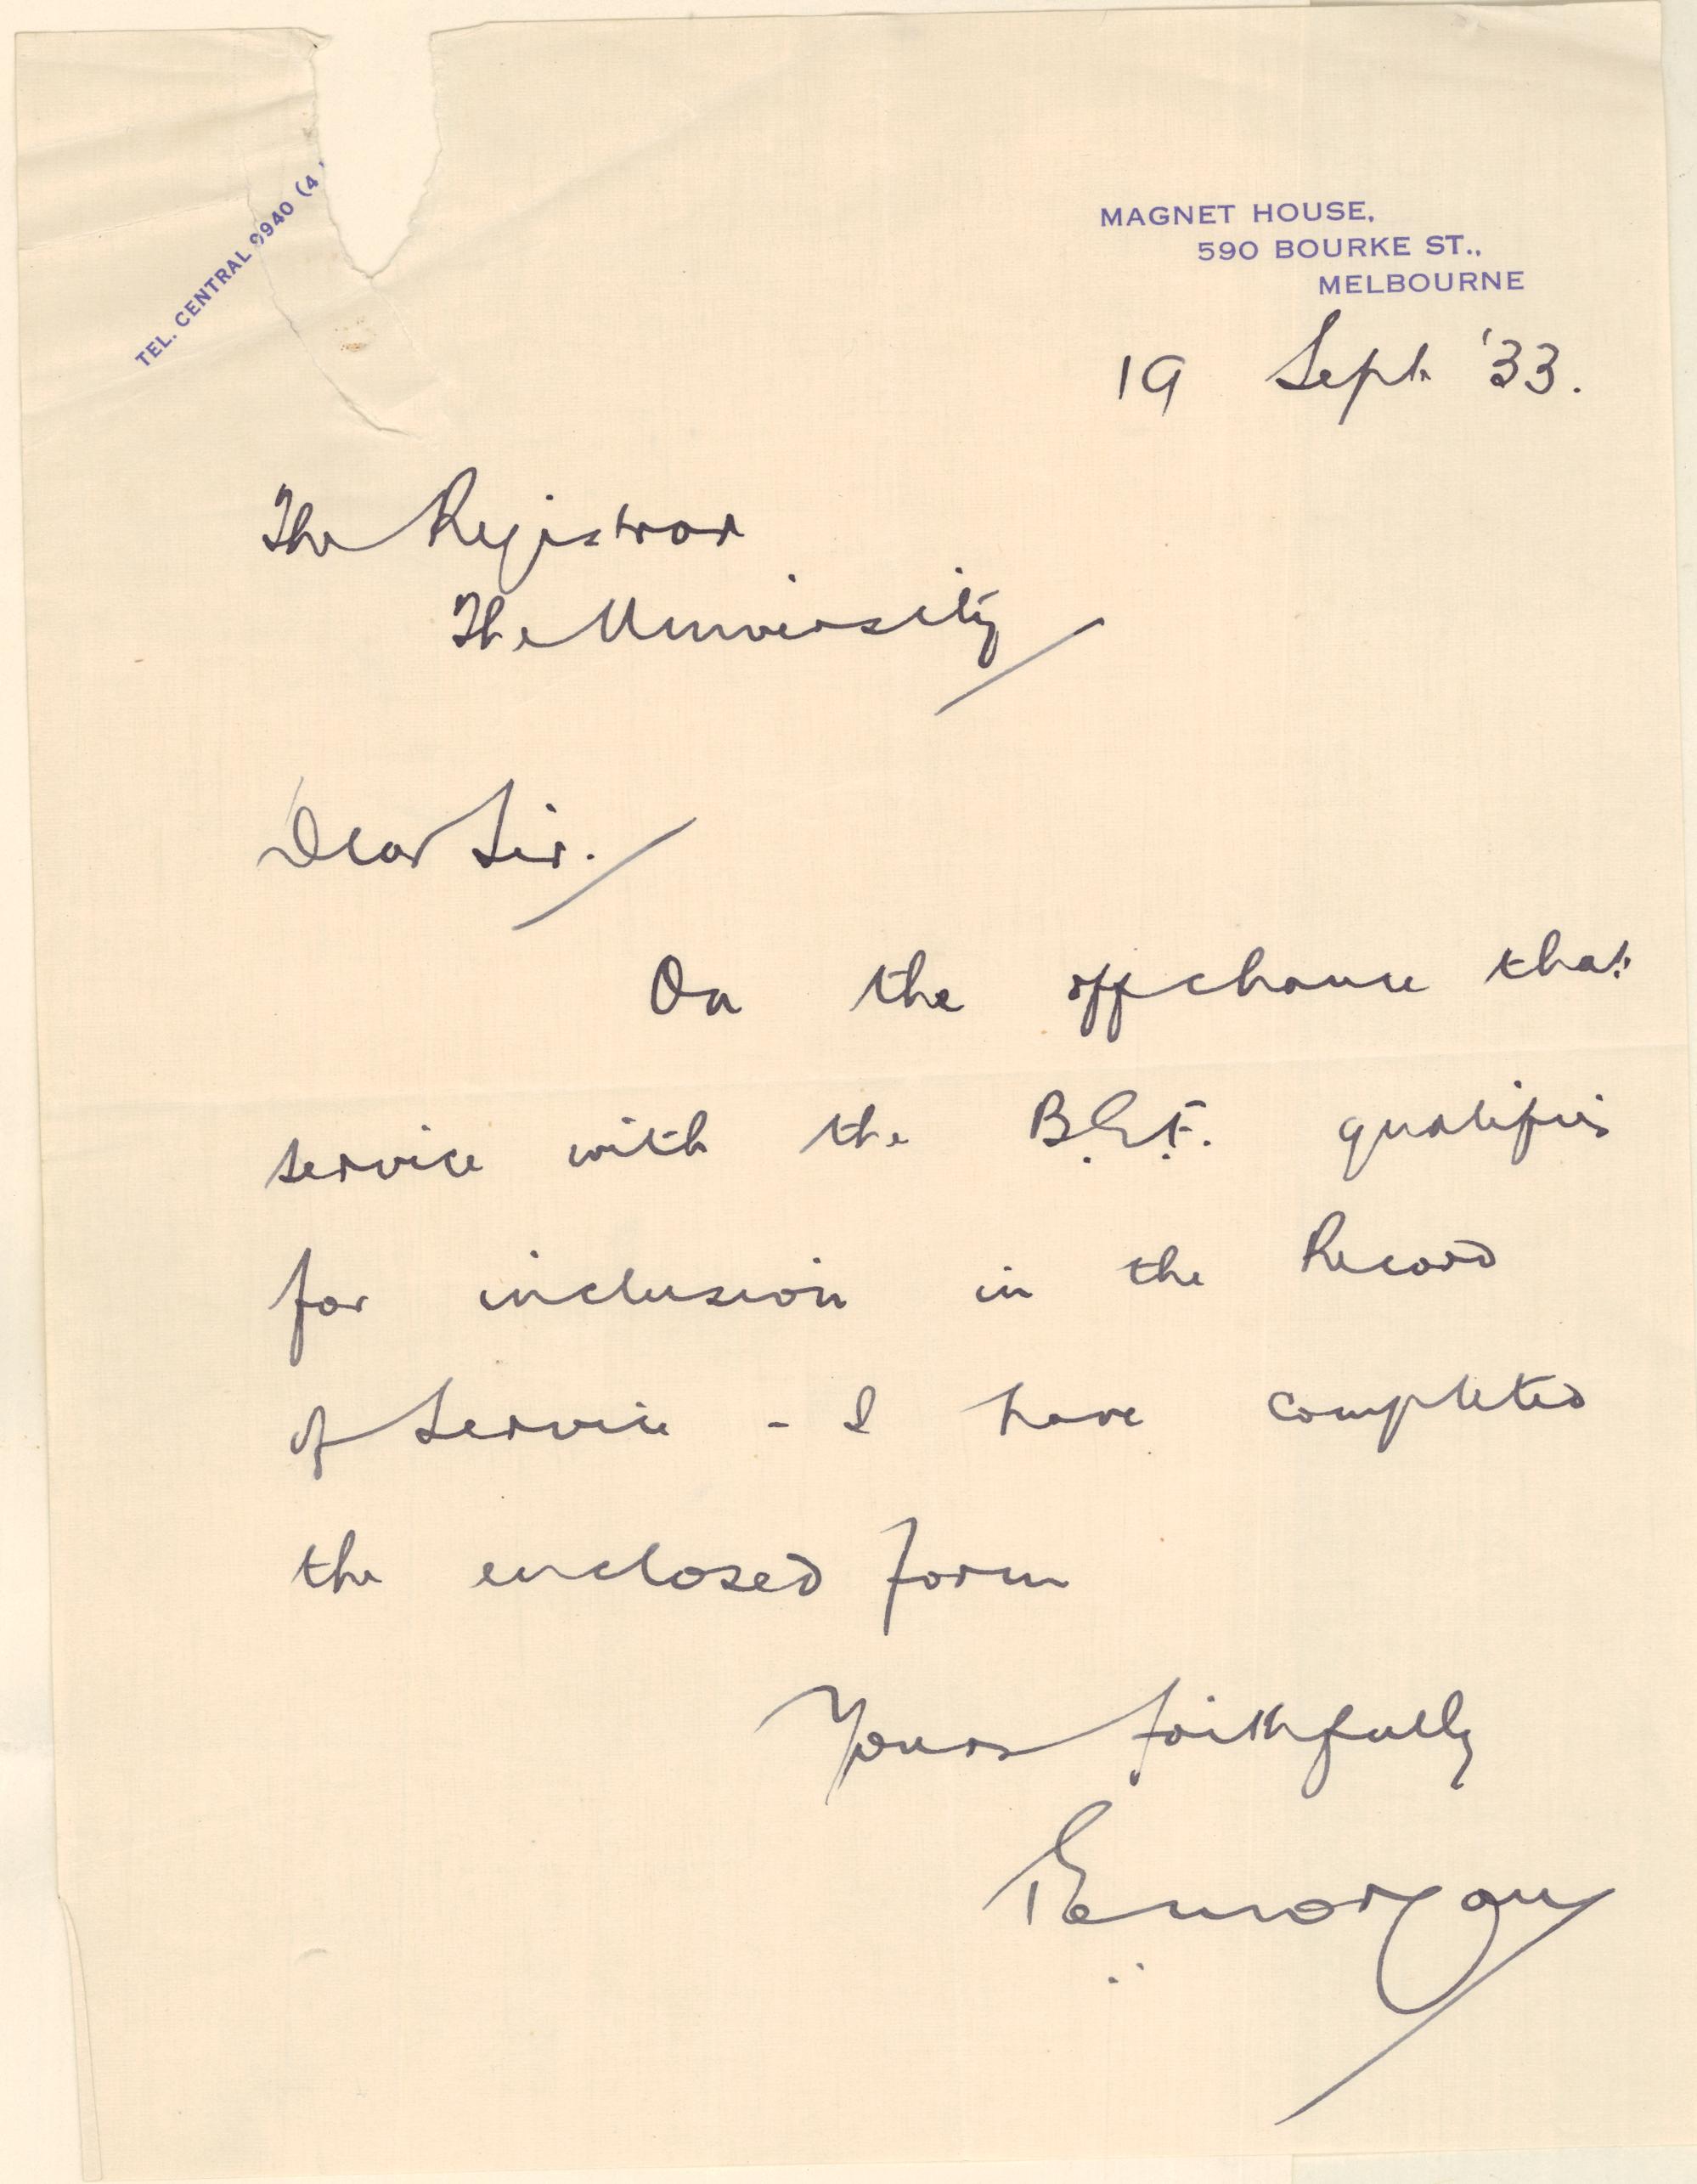 TEL. CENTRAL 9940 (4
MAGNET HOUSE,
590 BOURKE ST.,
MELBOURNE
19 Sept. '33.
The Registrar
The University
Dear Sir.
On the off chance that
service with the B.E.F. qualifies
for inclusion in the Record
of Service - I have completed
the enclosed form
Yours faithfully